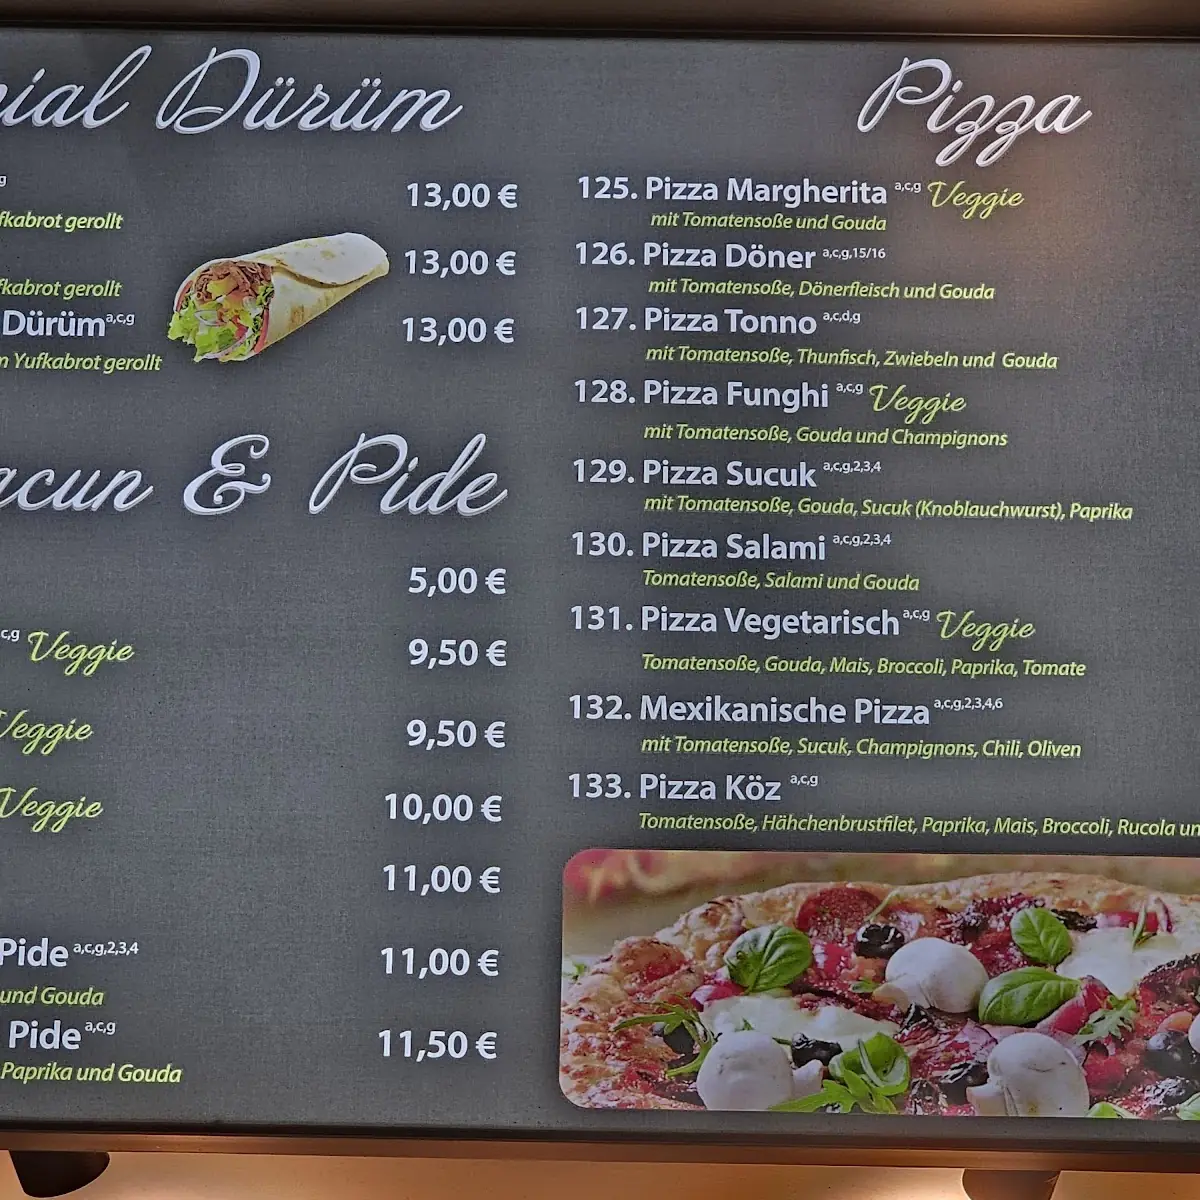 Dürüm
g
13,00 €
gerollt
13,00 €
gerollt
Dürüm a,c,g
13,00 €
Yufkabrot gerollt
& Pide
5,00 €
c,g Veggie
9,50 €
Veggie
9,50 €
Veggie
10,00 €
11,00 €
Pide a,c,g,2,3,4
11,00 €
und Gouda
Pide a,c,g
11,50 €
Paprika und Gouda
Pizza
125. Pizza Margherita a,c,g Veggie
mit Tomatensoße und Gouda
126. Pizza Döner a,c,g,15/16
mit Tomatensoße, Dönerfleisch und Gouda
127. Pizza Tonno a,c,d,g
mit Tomatensoße, Thunfisch, Zwiebeln und Gouda
128. Pizza Funghi a,c,g Veggie
mit Tomatensoße, Gouda und Champignons
129. Pizza Sucuk a,c,g,2,3,4
mit Tomatensoße, Gouda, Sucuk (Knoblauchwurst), Paprika
130. Pizza Salami a,c,g,2,3,4
Tomatensoße, Salami und Gouda
131. Pizza Vegetarisch a,c,g Veggie
Tomatensoße, Gouda, Mais, Broccoli, Paprika, Tomate
132. Mexikanische Pizza a,c,g,2,3,4,6
mit Tomatensoße, Sucuk, Champignons, Chili, Oliven
133. Pizza Köz a,c,g
Tomatensoße, Hähchenbrustfilet, Paprika, Mais, Broccoli, Rucola